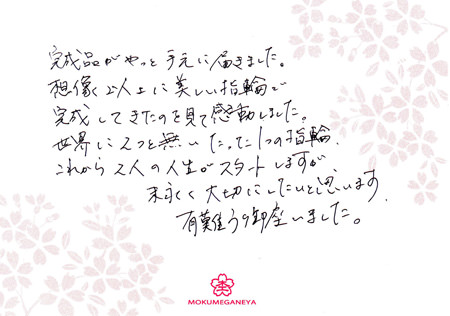 完成品がやっと手元に届きました。
想像以上に美しい指輪で
完成してきたのを見て感動しました。
世界に2つと無いたった1つの指輪。
これから2人の人生がスタートしますが
末永く大切にしたいと思います。
有難う御座いました。
MOKUMEGANEYA